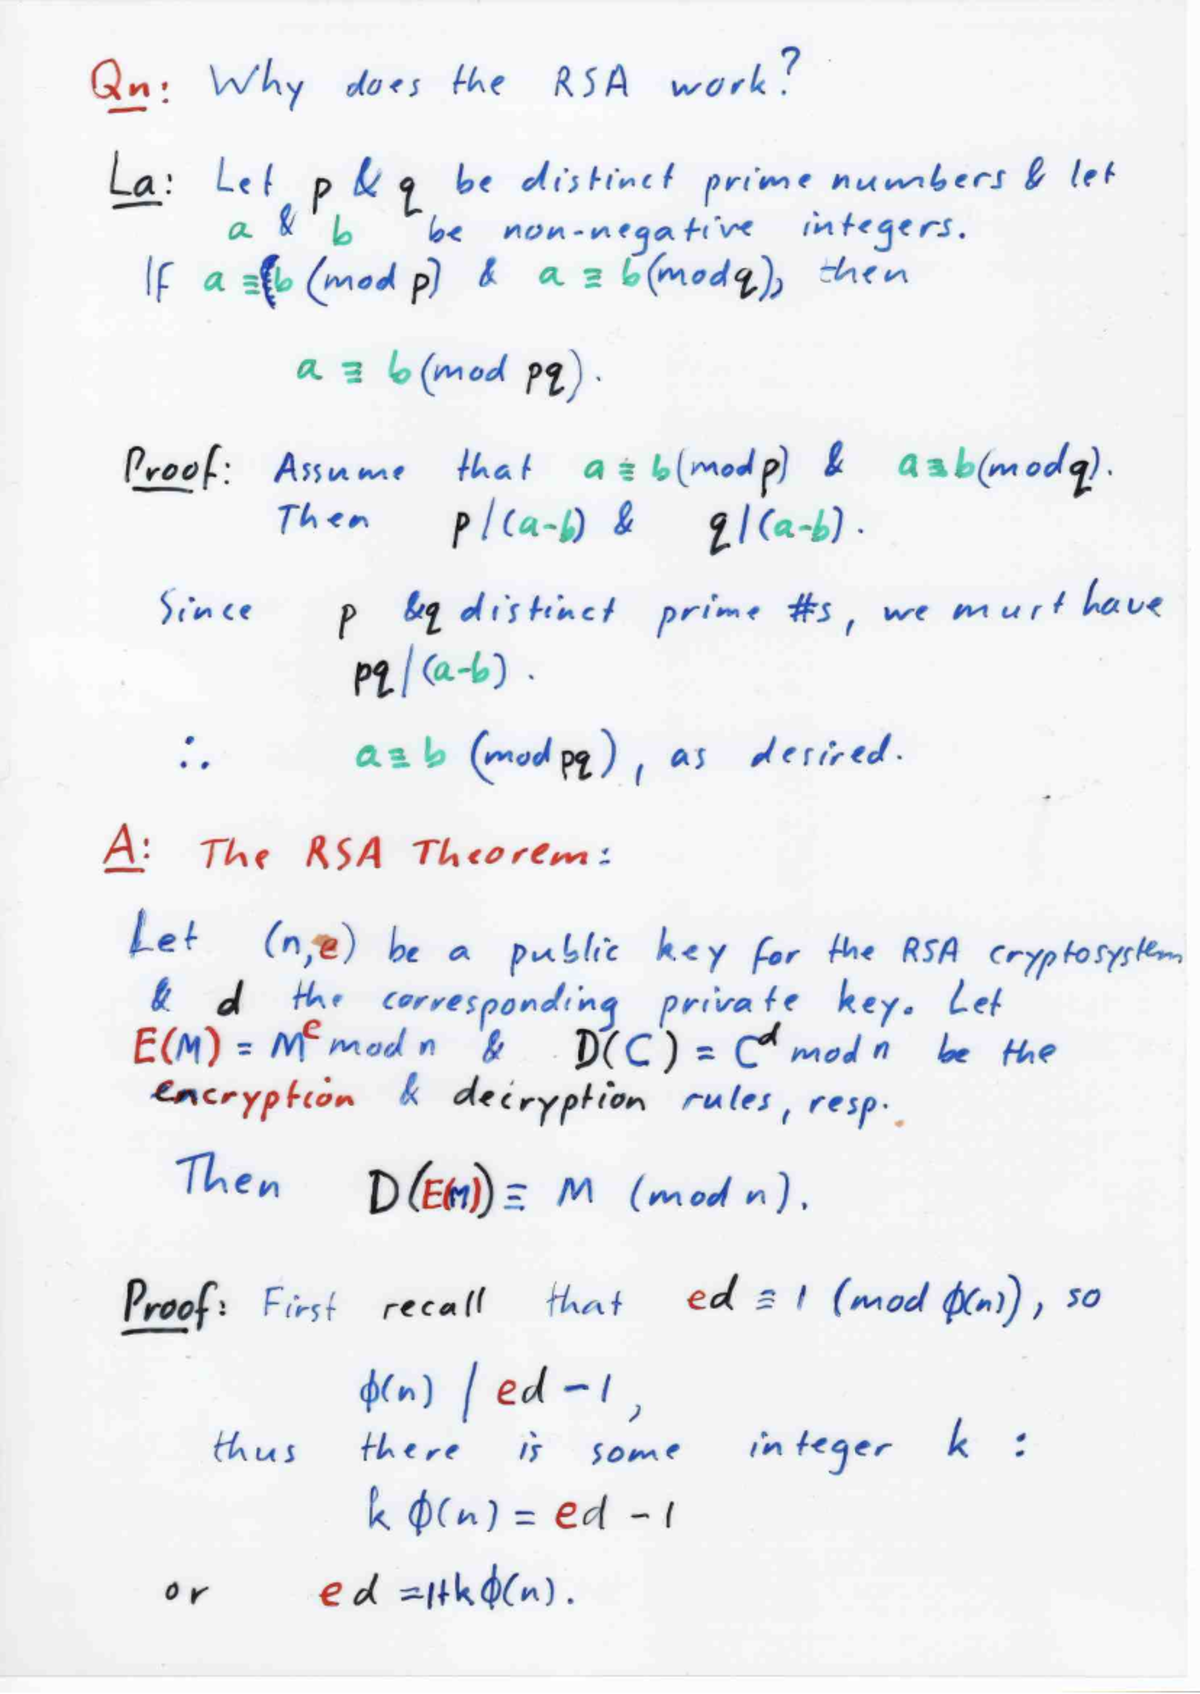 Qn: Why does the RSA work?
La: Let p & q be distinct prime numbers & let
a & b be non-negative integers.
If a ≡ b (mod p) & a ≡ b (mod q), then
a ≡ b (mod pq).
Proof: Assume that a ≡ b (mod p) & a ≡ b (mod q).
Then p | (a-b) & q | (a-b).
Since p & q distinct prime #s, we must have
pq | (a-b).
∴ a ≡ b (mod pq), as desired.
A: The RSA Theorem:
Let (n,e) be a public key for the RSA cryptosystem
& d the corresponding private key. Let
E(M) = M^e mod n & D(C) = C^d mod n be the
encryption & decryption rules, resp.
Then D(E(M)) ≡ M (mod n).
Proof: First recall that ed ≡ 1 (mod ϕ(n)), so
ϕ(n) | ed - 1,
thus there is some integer k :
k ϕ(n) = ed - 1
or ed = 1+kϕ(n).